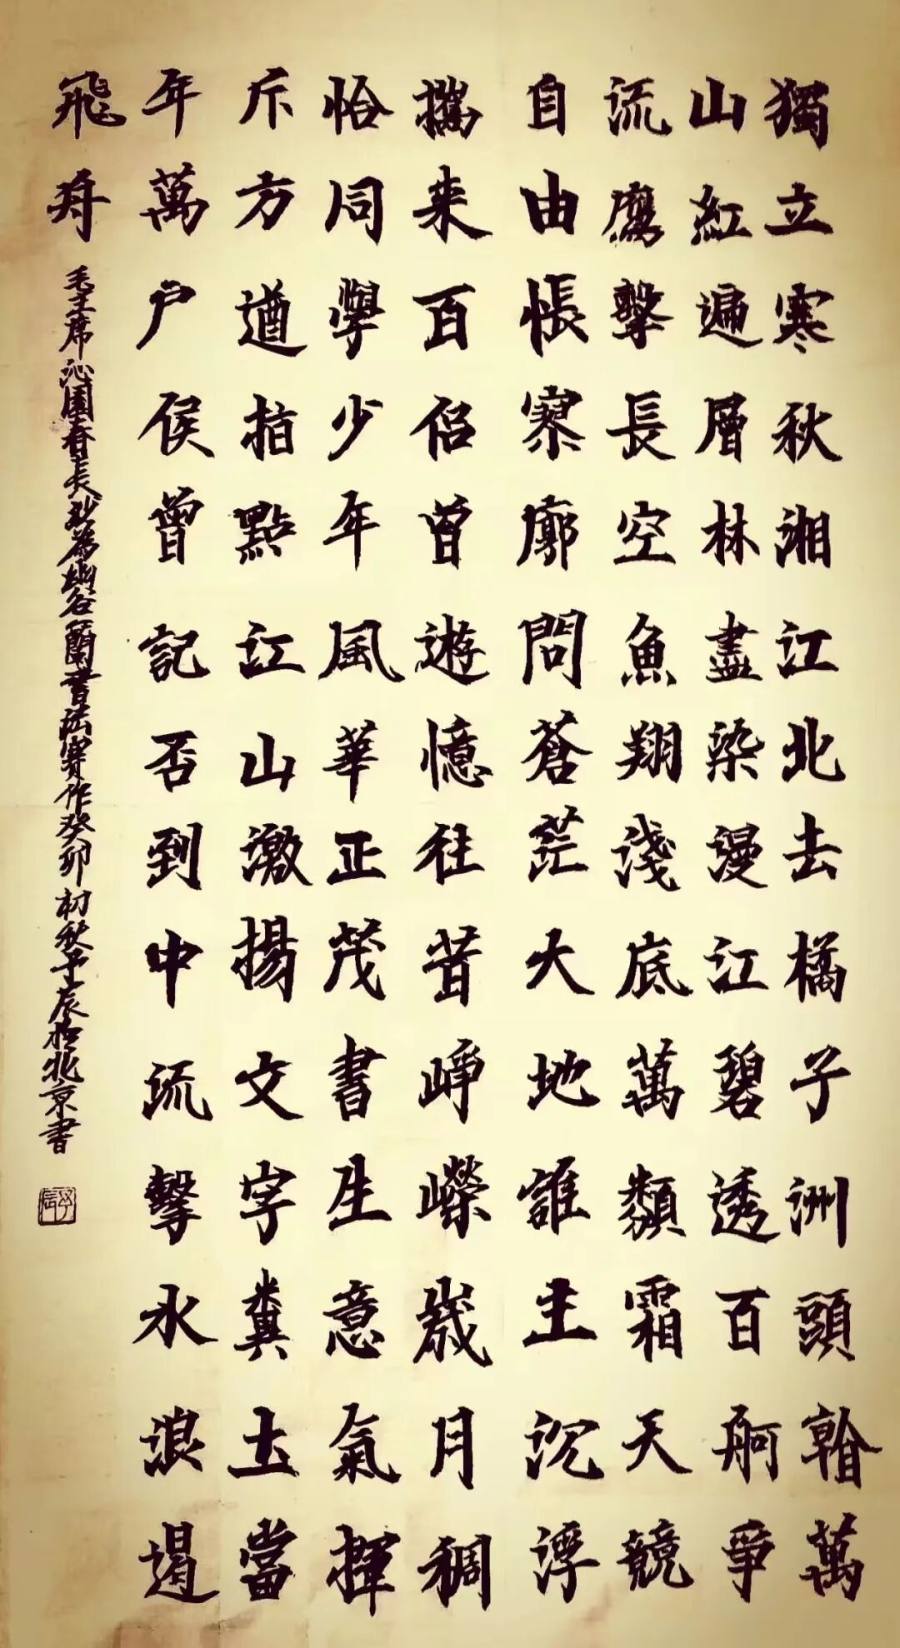 獨立寒秋湘江北去橘子洲頭㫋萬
山紅遍層林盡染漫江碧透百舸爭
流鷹擊長空魚翔淺底萬類霜天競
自由悵寥廓問蒼茫大地誰主沉浮
攜来百侣曾遊憶往昔崢嶸歲月稠
恰同學少年風華正茂書生意氣揮
斥方遒指點江山激揚文字糞土當
年萬户侯曾記否到中流擊水浪遏
飛舟
毛主席沁園春長沙為幽谷蘭書法賽作癸卯初秋子辰於北京書